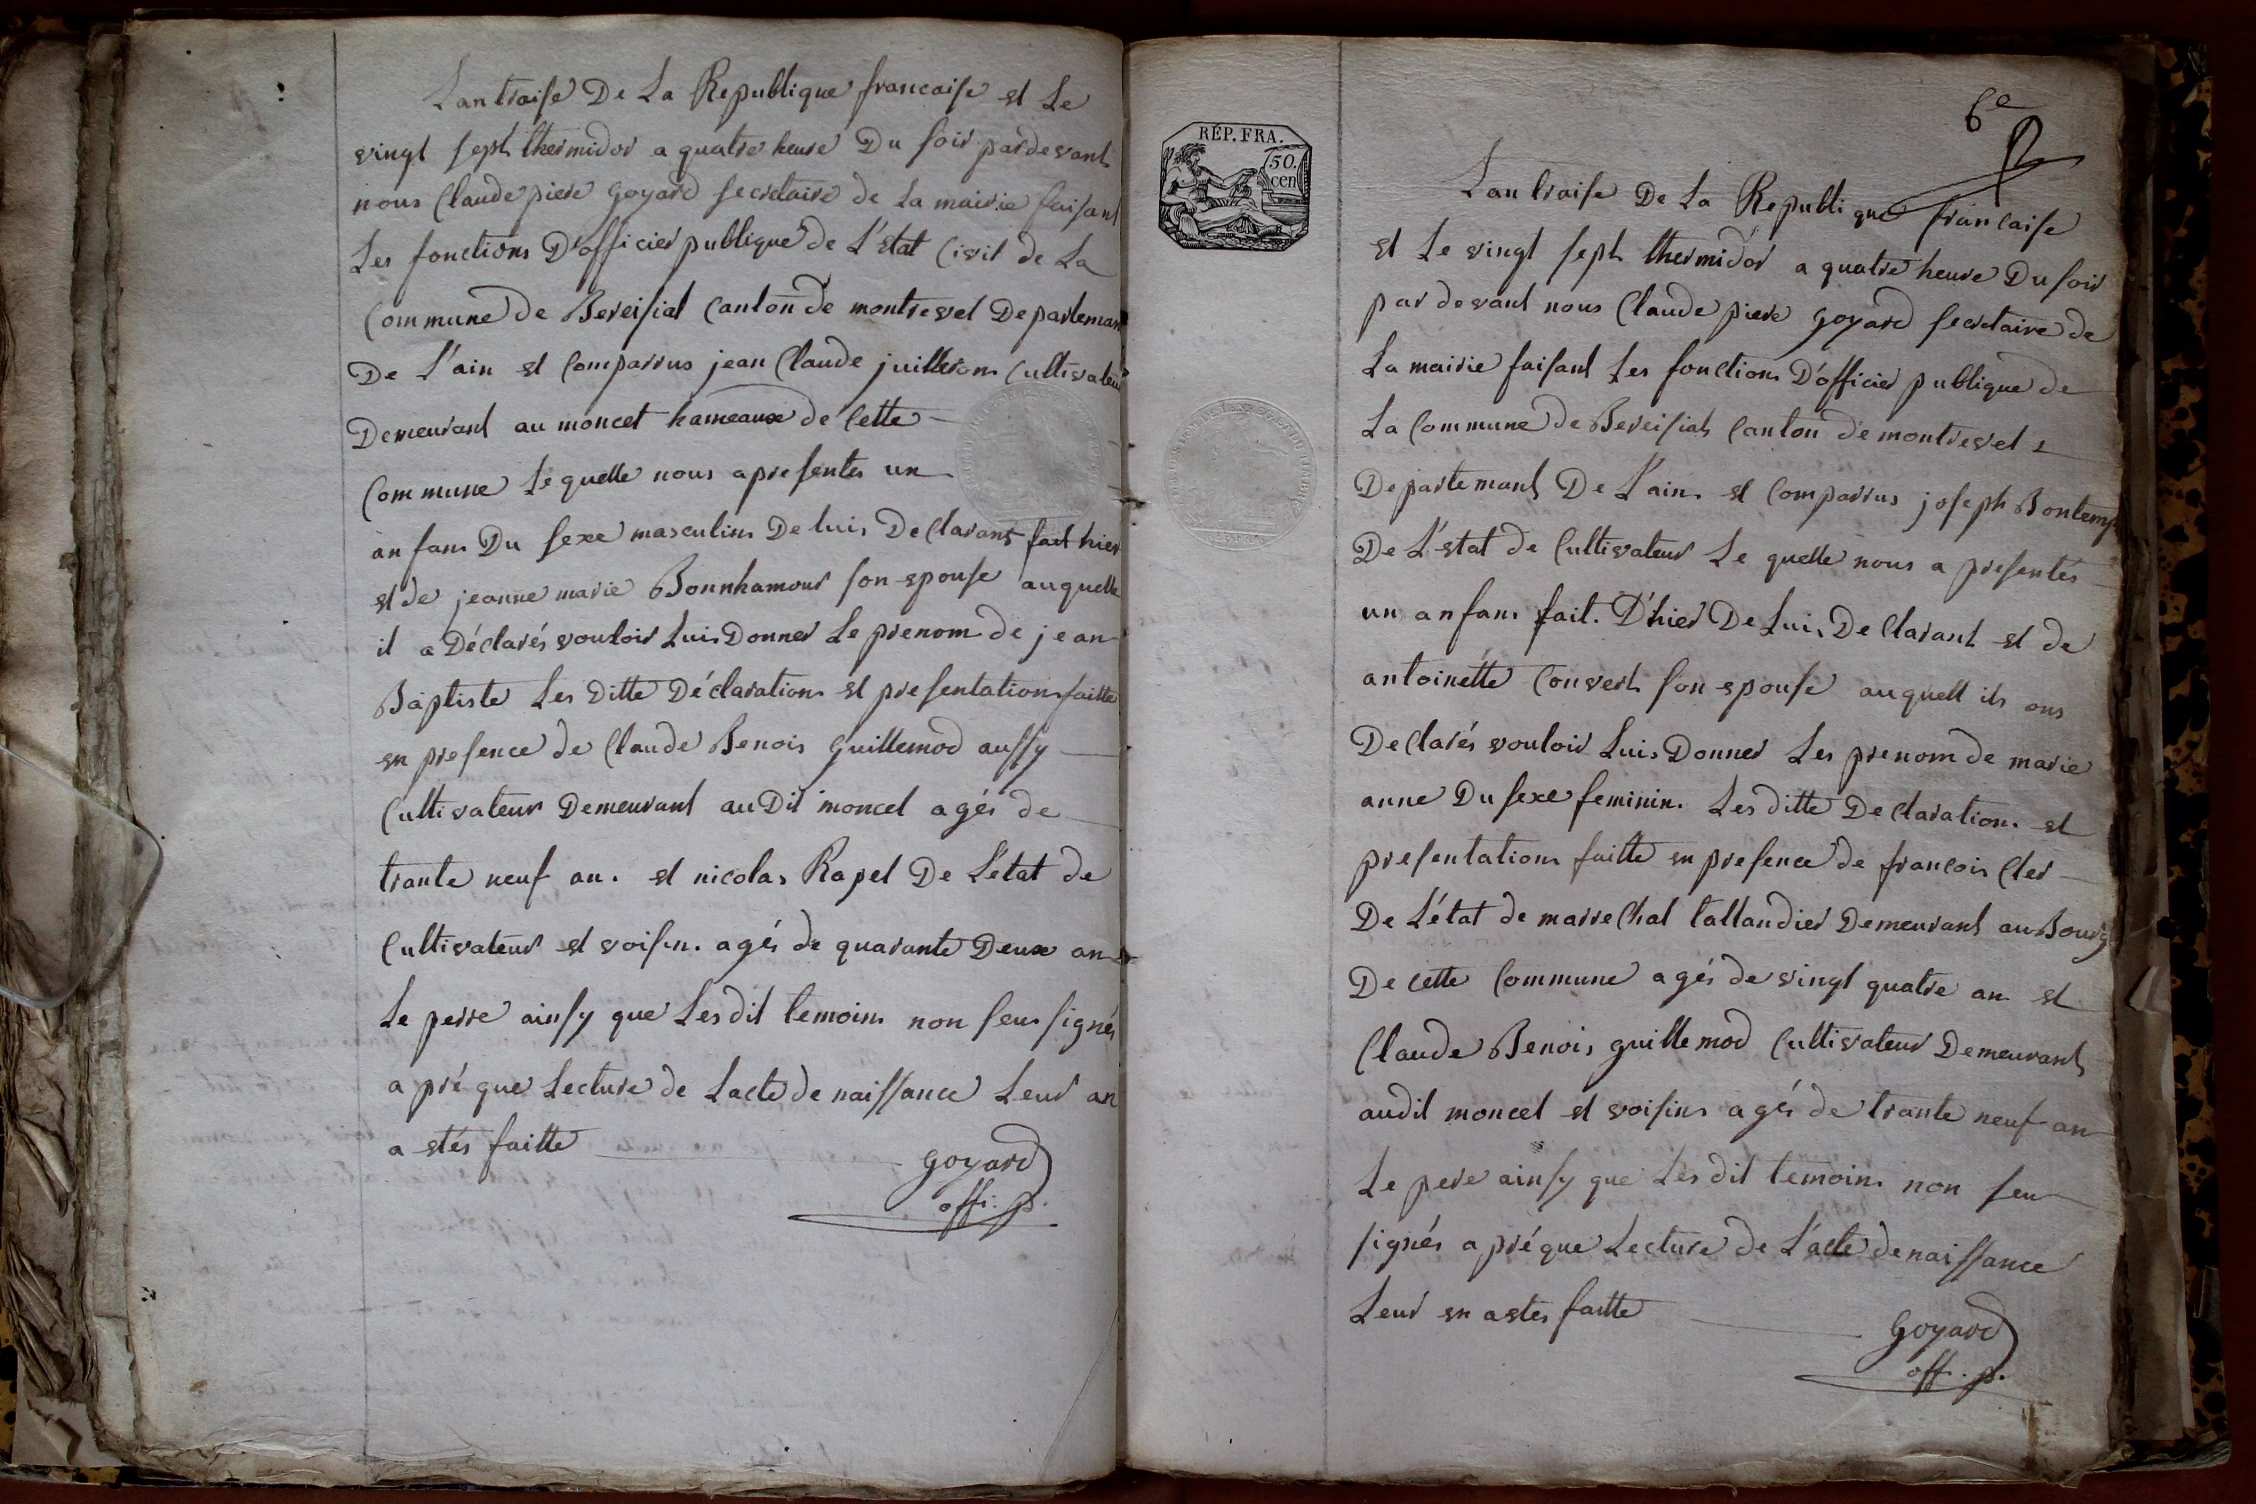 Lan traise De La Republique francaise et Le
vingt sept thermidor a quatre heure Du soir pardevant
nous Claude piere Goyard secretaire de La mairie faisant
Les fonctions D'officier publique de L'etat Civil de La
Commune de Bereisiat Canton de montrevel Departemant
De L'ain et Comparrus jean Claude juilleron Cultivateur
Demeurant au moncet hameaux de Cette
Commune Le quelle nous a presentes un
anfans Du sexe masculins De luis Declarant fait hier
et de jeanne marie Bonnhamour son epouse auquelle
il a Déclarés vouloir Luis Donner Le prenom de jean
Baptiste Les Ditte Déclarations et presentations faitte
en presence de Claude Benois Guillemod aussy
Cultivateur Demeurant au Dit moncel agés de
trante neuf an. et nicolas Rapet De Létat de
Cultivateur et voisin. agés de quarante Deux an
Le perre ainsy que Les dit temoins non seus signés
a pré que Lecture de Lacte de naissance Leur an
a étés faitte Goyard
offi. p.
6e
RÉP. FRA.
50.
cen
Lan traise De La Republique francaise
et Le vingt sept thermidor a quatre heure Du soir
par devant nous Claude piere Goyard secretaire de
La mairie faisant Les fonctions D'officier publique de
La Commune de Bereisiat Canton de montrevel
Departemant De L'ain et Comparrus joseph Bontemp
De L'etat de Cultivateur Le quelle nous a presentés
un anfans fait. D'hier De Luis Declarant et de
antoinette Convert son epouse auquell ils ons
Declarés vouloir Luis Donner Les prenom de marie
anne Du sexe feminin. Les ditte Declarations et
presentations faitte en presence de francois Cler
De L'état de marrechal tallandier Demeurant au Bourg
De cette Commune agés de vingt quatre an et
Claude Benois guillemod Cultivateur Demeurant
audit moncel et voisins agés de trante neuf an
Le pere ainsy que Les dit temoins non seu
signés a pré que Lecture de L'acte de naissance
Leur en a etes faitte Goyard
off. p.